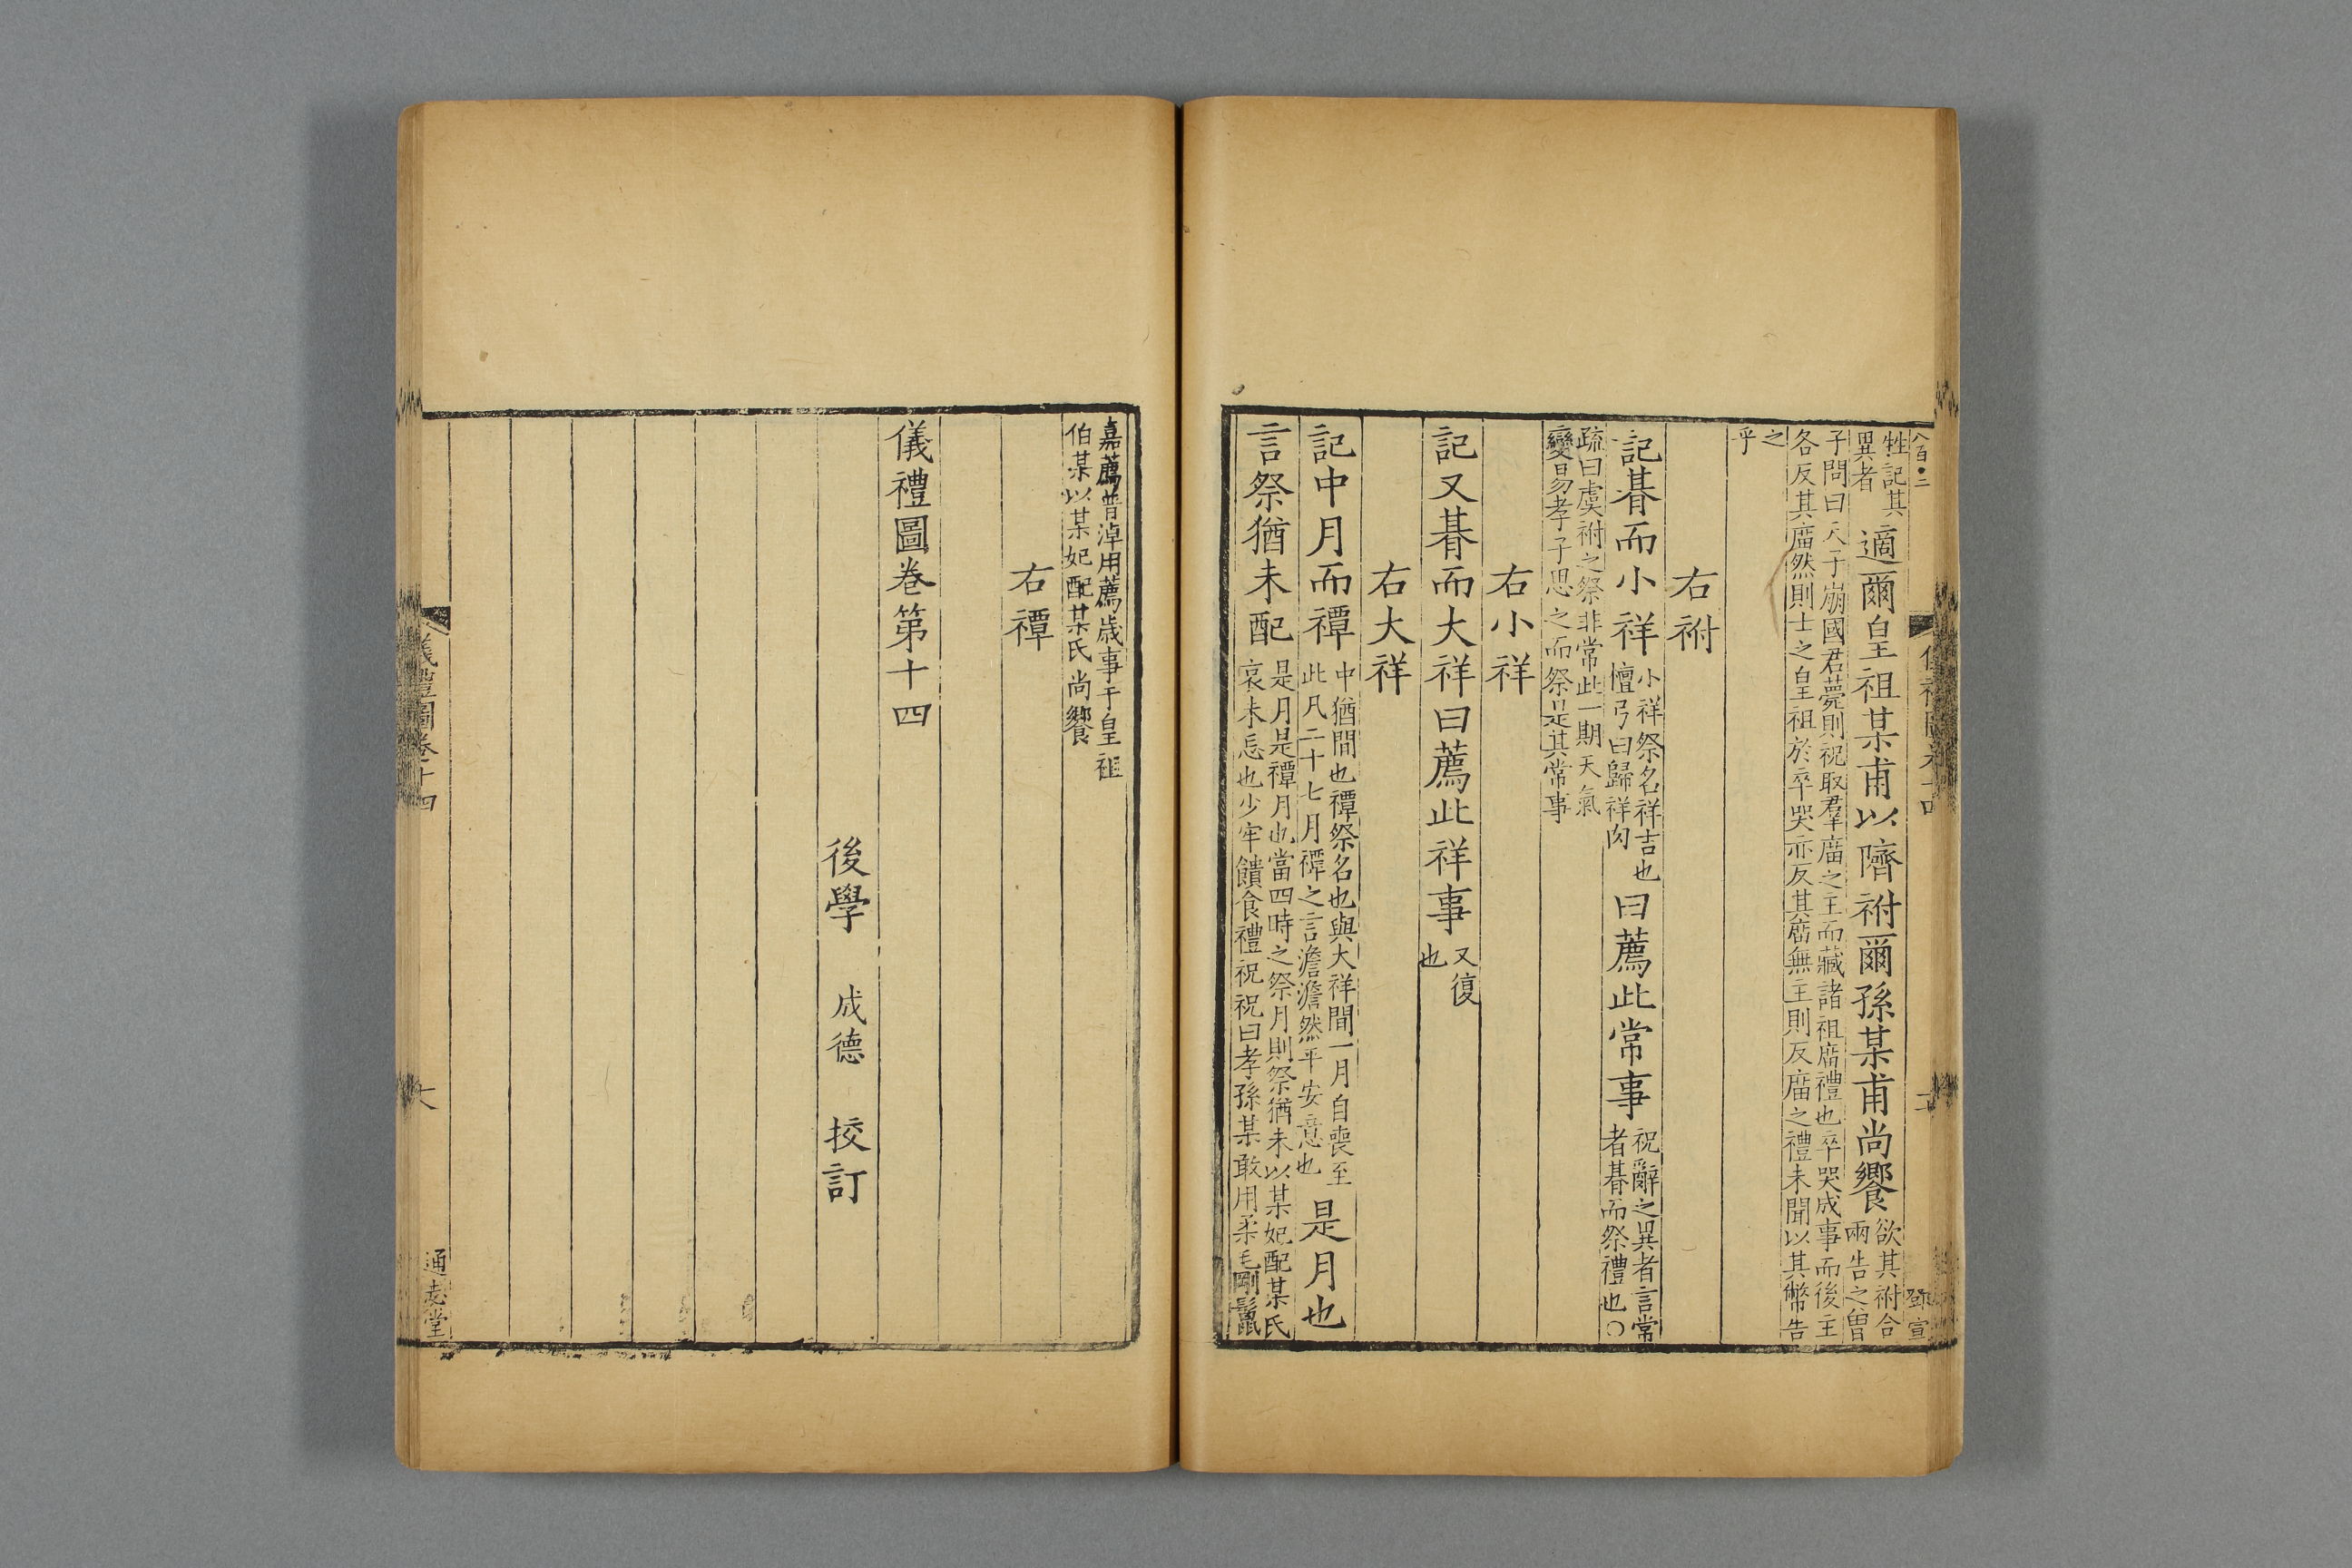 八百●二
牲記其
異者
適爾皇祖某甫以隮祔爾孫某甫尚饗
欲其祔合
兩告之曾
子問曰天子崩國君薨則祝取羣廟之主而藏諸祖廟禮也卒哭成事而後主
各反其廟然則士之皇祖於卒哭亦反其廟無主則反廟之禮未聞以其幣告
之
乎
右祔
記朞而小祥
小祥祭名祥吉也
檀弓曰歸祥肉
曰薦此常事
祝辭之異者言常
者朞而祭禮也○
疏曰虞祔之祭非常此一期天氣
變易孝子思之而祭是其常事
右小祥
記又朞而大祥曰薦此祥事
又復
也
右大祥
記中月而禫
中猶間也禫祭名也與大祥間一月自喪至
此凡二十七月禫之言澹澹然平安意也
是月也
言祭猶未配
是月是禫月也當四時之祭月則祭猶未以某妃配某氏
哀未忘也少牢饋食禮祝祝曰孝孫某敢用柔毛剛鬣
嘉薦普淖用薦歲事于皇祖
伯某以某妃配某氏尚饗
右禫
儀禮圖卷第十四
後學 成德 挍訂
儀禮圖卷十四
通志堂